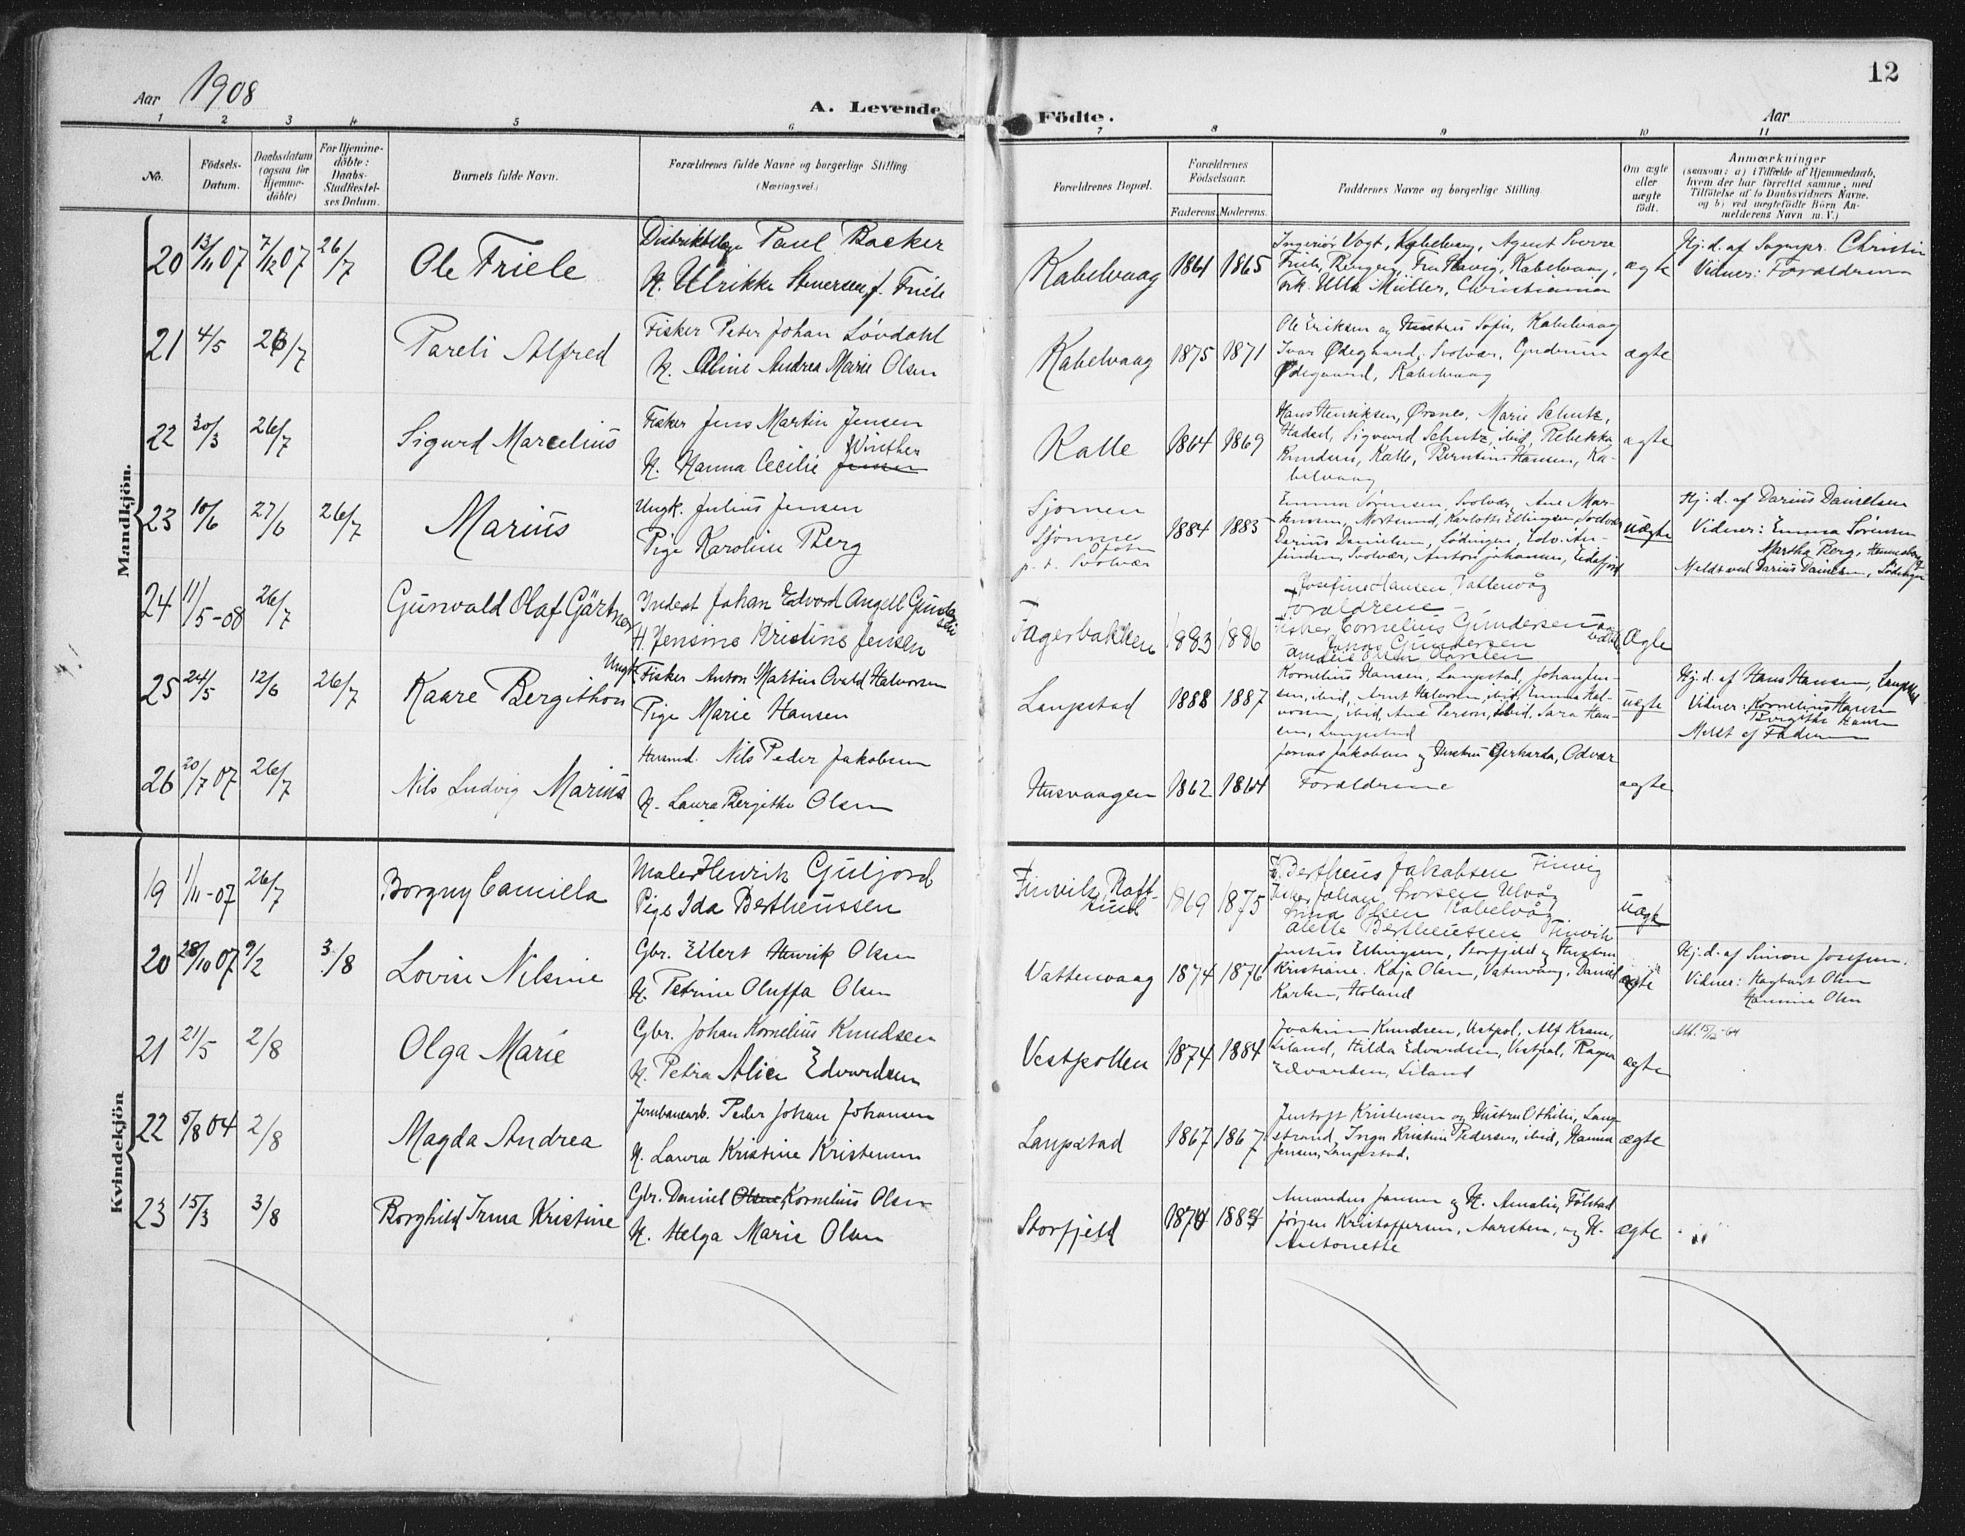 12
Aar 1908
A. Levende Födte.
Aar
1 2 3 4 5 6 7 8 9 10 11
No.
Födsels-Datum.
Daabsdatum (ogsaa for Hjemme-döbte)
For Hjemme-döbte: Daabs-Stadfæstel-ses Datum.
Barnets fulde Navn.
Forældrenes fulde Navne og borgerlige Stilling (Næringsvei.)
Forældrenes Bopæl.
Forældrenes Födselsaar.
Faderens. Moderens.
Faddernes Navne og borgerlige Stilling.
Om ægte eller uægte födt.
Anmærkninger
(saasom: a) i Tilfælde af Hjemmedaab,
hvem der har forrettet samme, med
Tilföielse af to Daabsvidners Navne.
og b) ved uægtefödte Börn An-
melderens Navn m. V.)
Mandkjön.
20 13/11 07 7/12 07 26/7 Ole Friele
Distriktslæge Paul Backer
H. Ulrikke Stenersen f. Friele
Kabelvaag 1861 1865
Ingeniør Vogt, Kabelvaag, Agent Sverre
Friele, Bergen, Fru Havig, Kabelvaag,
Frk. Ulla Müller, Christiania
ægte
Hj. d. af Sognepr. Christin
Vidner: Forældrene
21 4/5 26/7 Pareli Alfred
Fisker Peter Johan Løvdahl
H. Oline Andrea Marie Olsen
Kabelvaag 1875 1871
Ole Eriksen og Hustru Sofie, Kabelvaag
Ivar Ødegaard, Svolvær, Gudrun
Ødegaard, Kabelvaag
ægte
22 30/3 26/7 Sigurd Marcelius
Fisker Jens Martin Jensen
H. Hanna Cecilie Jensen Winther
Kalle 1864 1869
Hans Henriksen, Ørsnes, Marie Schutz,
Hadsel, Sigvard Schutz, ibid, Rebekka
Knudsen, Kalle, Berntine Hansen, Ka-
belvaag
ægte
23 10/6 27/6 26/7 Marius
Ungk. Julius Jensen
Pige Karoline Berg
Sjømen
p. t. Svolvær
1884 1883
Emma Sørensen, Svolvær, Ane Mar-
Darius Danielsen, Lødingen, Edv. An-
Svolvær, Anton Johansen, Eidsfjord
uægte
Hj. d. af Darius Danielsen
Vidner: Emma Sørensen
Martha Berg,
Meldt ved Darius Danielsen, Lødingen
24 11/5-08 26/7 Gunvald Olaf Gärtner
Inderst Johan Edvard Angell Gunder
sen
H. Jensine Kristine Jensen
Fagerbakken 1883 1886
Josefine Hansen,
Forældrene
Fisker Cornelius Gundersen
Jonas Gundersen
Ægte
25 24/5 12/6 26/7 Kaare Bergithon
Ungk. Fisker Anton Martin Ovald Halvorsen
Pige Marie Hansen
Laupstad 1888 1887
Kornelius Hansen, Laupstad, Johan Jen-
sen, ibid, Arnt Halvorsen, ibid, Emma Hal-
vorsen, ibid, Ane Person, ibid, Sara Han-
sen, Laupstad
uægte
Hj. d. af Hans Hansen, Laupstad
Vidner: Kornelius Hansen
Bergithe Hansen
Meldt af Faderen
26 20/7 07 26/7 Nils Ludvig Marius
Husmd. Nils Peder Jakobsen
H. Laura Bergithe Olsen
Husvaagen 1862 1864
Jonas Jakobsen og Hustru Gerharda, Odvær
Forældrene
ægte
Kvindekjön
19 1/11-07 26/7 Borgny Camilla
Maler Henrik Guljord
Pige Ida Bertheussen
Finvik, Raft-
sund
1869 1875
F. Bertheus Jakobsen Finvig
Fisker Johan Larsen Ulvåg
Anna Olsen Kabelvåg
Bertheussen Finvik
uægte
20 28/10 07 9/2 3/8 Lovise Nilsine
Gbr. Ellert Henrik Olsen
H. Petrine Oluffa Olsen
Vattenvaag 1874 1876
Justus Ellingsen, Storfjeld og Hustru
Kristiane. Kaja Olsen, Vatnvaag, Daniel
Karlsen, Holand
ægte
Hj. d. af Simon Josefsen.
Vidner: Hagbart Olsen
Hansine Olsen
21 21/5 2/8 Olga Marie
Gbr. Johan Kornelius Knudsen
H. Petra Alice Edvardsen
Vestpollen 1874 1884
Joakim Knudsen, Vestpol, Alf Kram,
Liland, Hilda Edvardsen, Vestpol, Ragna
Edvardsen, Liland
ægte
Att. 15/12-64
22 5/8 04 2/8 Magda Andrea
Jernbanearb. Peder Johan Johansen
H. Laura Kristine Kristensen
Laupstad 1867 1867
Jentoft Kristensen og Hustru Othilie, Laup-
strand, Inga Kristine Pedersen, ibid, Hanna
Jensen, Laupstad.
ægte
23 15/3 3/8 Borghild Irma Kristine
Gbr. Daniel Olsen, Kornelius Olsen
H. Helga Marie Olsen
Storfjeld 1874 1884
Amandus Jansen og H. Amalie, Følstad
Jørgen Kristoffersen, Aarsten, og H.
Antonette
ægte